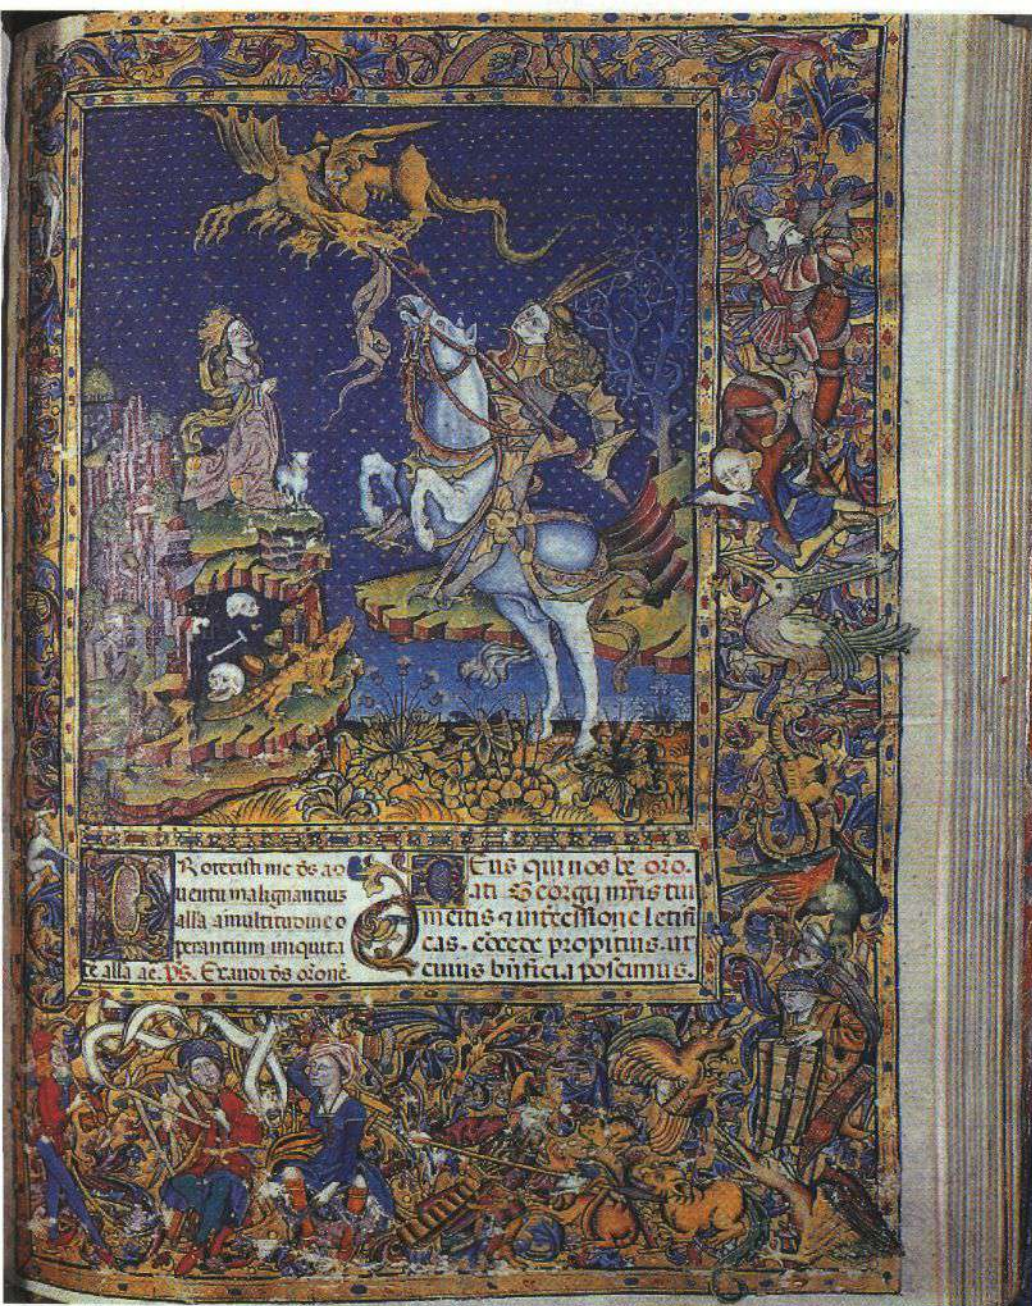 PRotexisti me ds a ꝯ
uentu malignantius
alla a multitudine o
perantium iniquita
te alla ae. Ps. Exaudi ds orone.
DEus qui nos be oro.
ati Georgii mris tui
meitis ⁊ intcessione letifi
cas. cocede propitius. ut
cuius bnficia poscimus.